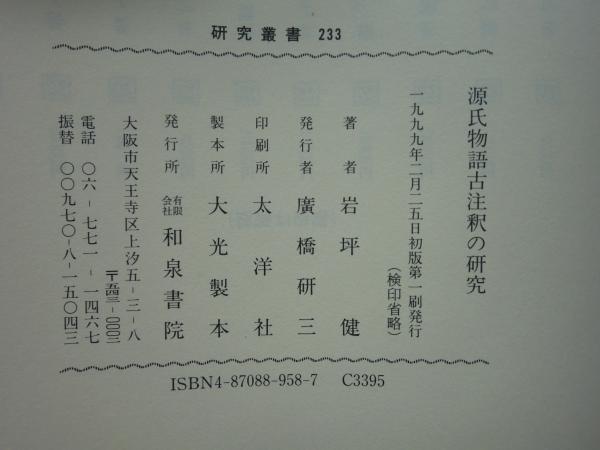 研究叢書 233
源氏物語古注釈の研究
一九九九年二月二五日初版第一刷発行
（検印省略）
著者 岩坪健
発行者 廣橋研三
印刷所 太洋社
製本所 大光製本
発行所 有限会社 和泉書院
大阪市天王寺区上汐五-三-八
〒五四三-〇〇〇二
電話 〇六-七七一-一四六七
振替 〇〇九七〇-八-一五〇四三
ISBN4-87088-958-7 C3395